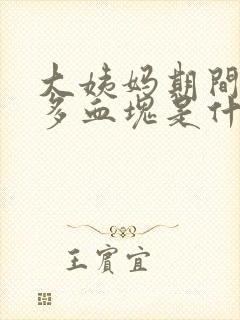 大姨妈期間
多血塊是什
王賓宜